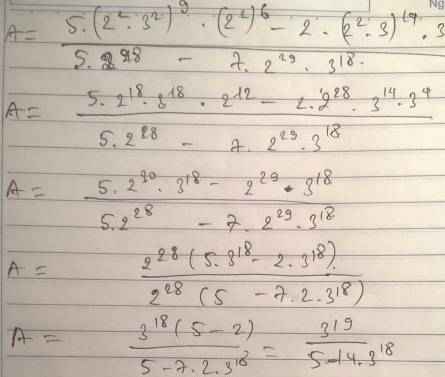 Ng
A = 5.(2².3²)⁹.(2²)⁶ - 2.(2².3)¹⁴.3
5.2²⁸ - 7.2²⁹.3¹⁸
A = 5.2¹⁸.3¹⁸.2¹² - 2.2²⁸.3¹⁴.3⁴
5.2²⁸ - 7.2²⁹.3¹⁸
A = 5.2³⁰.3¹⁸ - 2²⁹.3¹⁸
5.2²⁸ - 7.2²⁹.3¹⁸
A = 2²⁸(5.3¹⁸ - 2.3¹⁸).
2²⁸(5 - 7.2.3¹⁸)
A = 3¹⁸(5-2) = 3¹⁹
5-7.2.3¹⁸ 5-14.3¹⁸